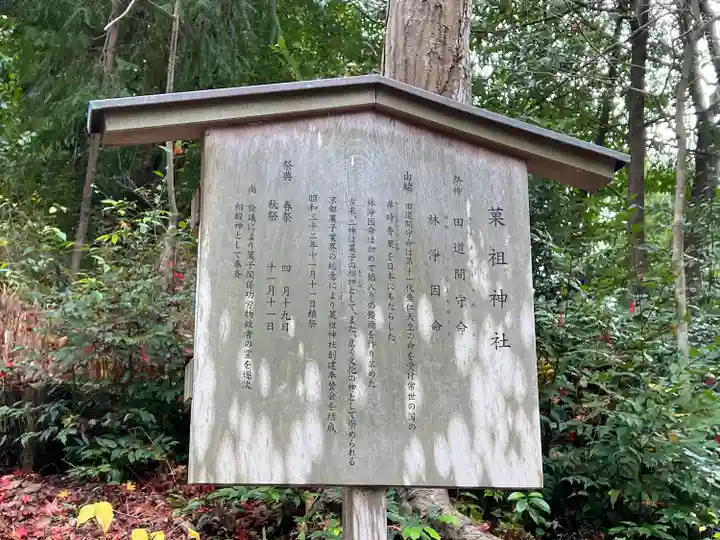 菓祖神社
祭神 田道間守命
林浄因命
由緒 田道間守命は第十一代垂仁天皇の命を受け常世の国の
非時香菓を日本にもたらした。
林浄因命は初めて餡入りの饅頭を作り広めた
古来、二神は菓子の祖神として、また、広く文化の神として崇められる
京都菓子業界の総意により菓祖神社創建奉賛会を結成、
昭和三十二年十一月十一日鎮祭
祭典 春祭 四月十九日
秋祭 十一月十一日
尚 詮議により菓子関係功労物故者の霊を逐次
相殿神として奉斎